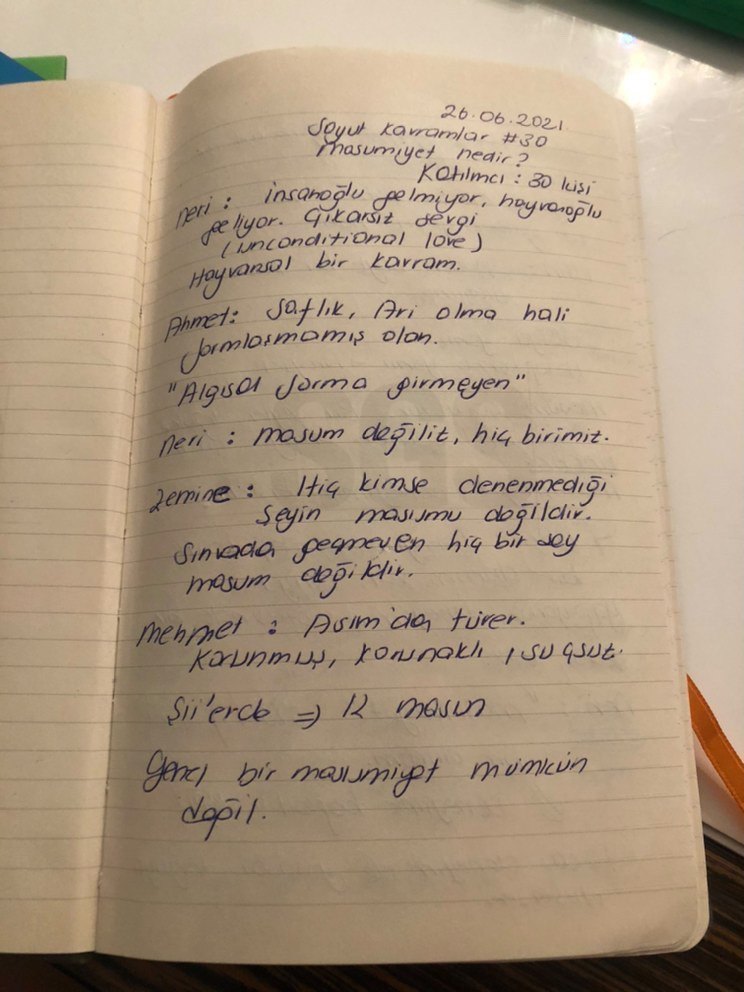 26.06.2021
Soyut kavramlar #30
Masumiyet nedir?
Katılmcı : 30 kişi
Neri : İnsanoğlu gelmiyor, hayvanoğlu
geliyor. Çıkarsız sevgi
(unconditional love)
Hayvansal bir kavram.
Ahmet: Saflık, Ari olma hali
formlaşmamış olan.
"Algısal forma girmeyen"
Neri : masum değiliz, hiç birimiz.
Zemine : Hiç kimse denenmediği
şeyin masumu değildir.
Sınvada geçmeyen hiç bir şey
masum değildir.
Mehmet : Asım'da türer.
Korunmuş, korunaklı, suçsuz.
Şii'erde => 12 masum
Genel bir masumiyet mümkün
değil.